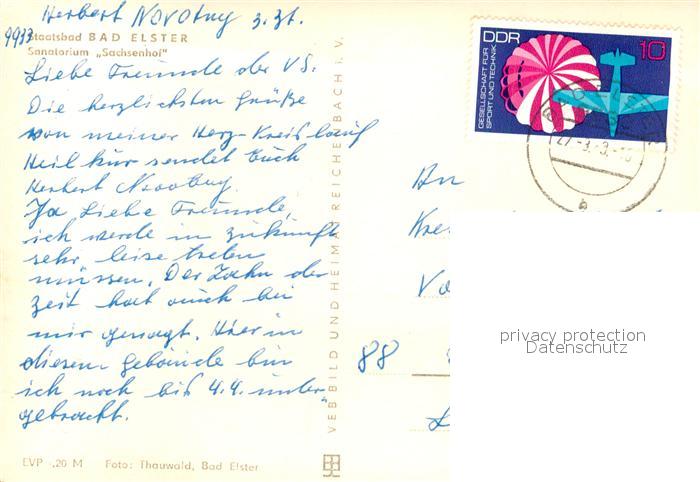 Herbert Novotny z. Zt.
9933
Staatsbad BAD ELSTER
Sanatorium „Sachsenhof"
Liebe Freunde der VS.
Die herzlichsten Grüße
von meiner Herz-Kreislauf
Heilkur sendet Euch
Herbert Novotny.
Ja Liebe Freunde,
ich werde in zukünft
sehr leise treten
müssen. Der Zahn der
Zeit hat auch bei
mir genagt. Hier in
diesem gebäude bin
ich noch bis 4.4. unter-
gebracht.
EVP -,20 M Foto: Thauwald, Bad Elster
VEB BILD UND HEIMAT REICHENBACH i. V.
DDR 10
GESELLSCHAFT FÜR
SPORT UND TECHNIK
27.-3.
An
Kre
88
privacy protection
Datenschutz